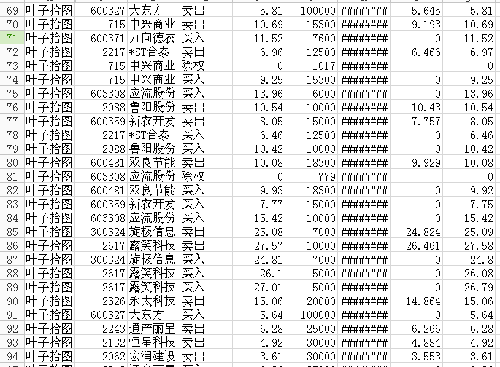 69 叶子拾图 600327 大东方 卖出 5.81 100000 ######## 5.645 5.81
70 叶子拾图 715 中兴商业 卖出 10.69 15300 ######## 9.193 10.69
71 叶子拾图 600371 万向德农 买入 11.52 7600 ######## 0 11.52
72 叶子拾图 2217 *ST合泰 卖出 6.96 12500 ######## 6.466 6.97
73 叶子拾图 715 中兴商业 除权 0 1017 ######## 0 0
74 叶子拾图 715 中兴商业 买入 9.25 15300 ######## 0 9.25
75 叶子拾图 603308 应流股份 买入 13.96 6000 ######## 0 13.96
76 叶子拾图 2088 鲁阳股份 卖出 10.54 10000 ######## 10.43 10.54
77 叶子拾图 600359 新农开发 卖出 8.05 15000 ######## 7.757 8.05
78 叶子拾图 2217 *ST合泰 买入 6.46 12500 ######## 0 6.46
79 叶子拾图 2088 鲁阳股份 买入 10.42 10000 ######## 0 10.42
80 叶子拾图 600481 双良节能 卖出 10.08 18300 ######## 9.929 10.08
81 叶子拾图 603308 应流股份 除权 0 779 ######## 0 0
82 叶子拾图 600481 双良节能 买入 9.93 18300 ######## 0 9.92
83 叶子拾图 600359 新农开发 买入 7.77 15000 ######## 0 7.75
84 叶子拾图 603308 应流股份 买入 15.42 10000 ######## 0 15.42
85 叶子拾图 300324 旋极信息 卖出 25.08 7000 ######## 24.824 25.09
86 叶子拾图 2617 露笑科技 卖出 27.57 10000 ######## 26.401 27.58
87 叶子拾图 300324 旋极信息 买入 24.81 7000 ######## 0 24.8
88 叶子拾图 2617 露笑科技 买入 26.1 5000 ######## 0 26.08
89 叶子拾图 2617 露笑科技 买入 27.01 5000 ######## 0 26.79
90 叶子拾图 2326 永太科技 卖出 15.06 20000 ######## 14.864 15.06
91 叶子拾图 600327 大东方 买入 5.64 100000 ######## 0 5.64
92 叶子拾图 2243 通产丽星 卖出 6.28 25000 ######## 6.206 6.28
93 叶子拾图 2132 恒星科技 卖出 4.92 30000 ######## 4.884 4.92
94 叶子拾图 2062 宏润建设 卖出 3.61 30000 ######## 3.553 3.61